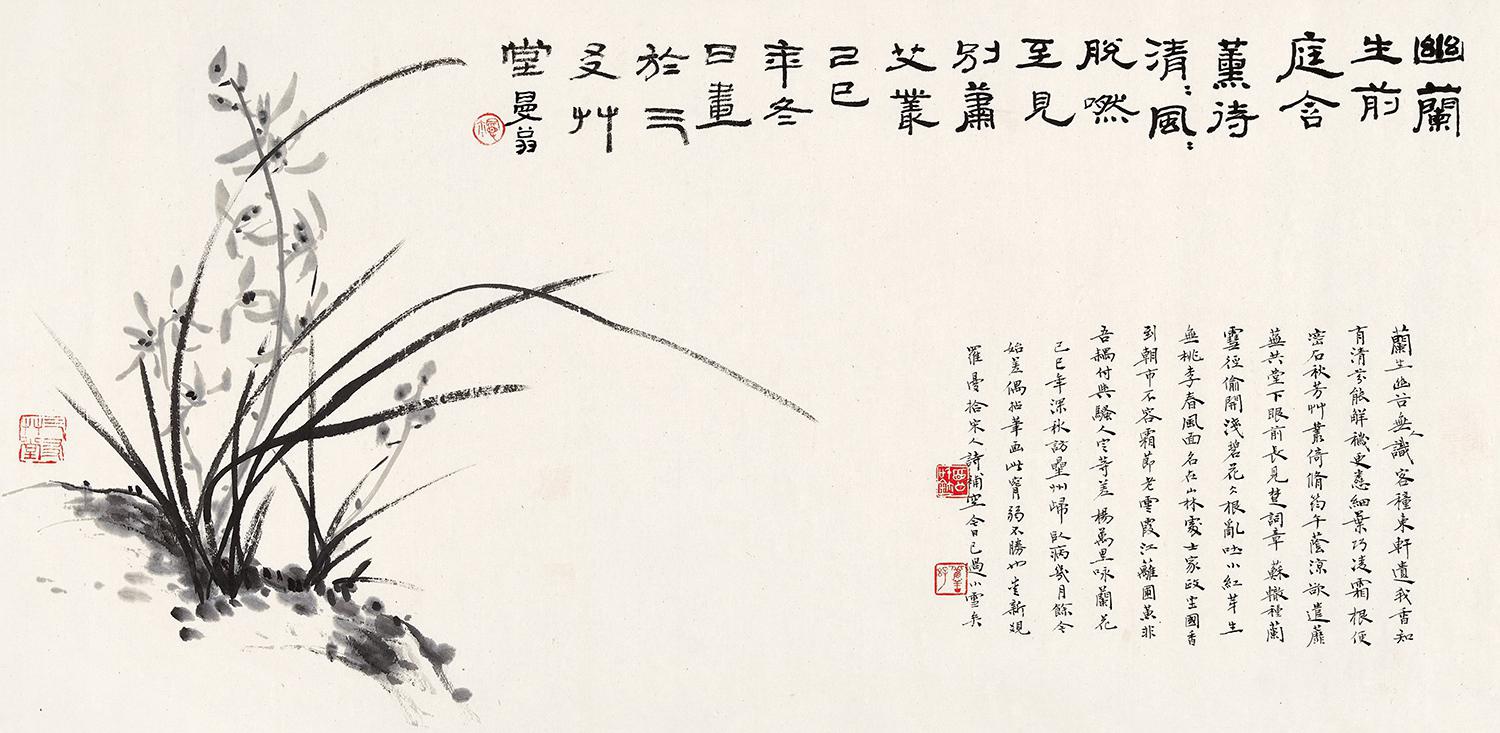 幽蘭
生前
庭含
薰待
清〻風〻
脫嘫
至見
別蕭
艾叢
己巳
年冬
日畫
於三
友艸
堂曼翁
蘭生幽谷無人識客種東軒遺我香知
有清芬能解穢更憐細葉巧凌霜根便
密石秋芳艸叢倚脩筠午蔭涼欲遣蘼
蕪共堂下眼前長見楚詞章 蘇轍種蘭
雪徑偷開淺碧花〻根亂吐小紅芽生
無桃李春風面名在山林處士家政坐國香
到朝市不容霜節老雲霞江蘺圃蕙非
吾耦付與騷人定等差 楊萬里咏蘭花
己巳年深秋訪壘州歸臥病幾月餘今
始差偶拈筆画此弱不勝也
拾宋人詩補空今日已過小雪矣
三友艸堂